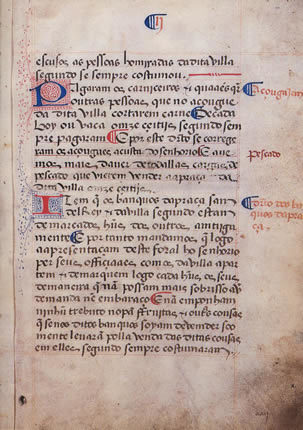 escusos as pessoas homrradas da dita villa
segundo se sempre costumou.
Pagaram os carniceiros e quaaes q̃r
outras pessoas, que no açougue
da dita villa cortarem carne De cada
boy ou vaca omze çeitijs, segundo sem
pre pagaram E por este dito se correge
ram os açougues acusta do senhorio E
mais daver de todallas cargas de
pescado que vierem vender aa praça da
dita villa omze çeitijs.
Item q̃ os banquos da praça sam
delles e da villa segundo estam
demarcados, huũs, dos outros, amtigua
mente E por tanto mandamos, q̃ logo
a apresentaçam deste foral ho senhorio
per seus officiaaes com os da villa apar
tem e demarquem logo cada huũs, os seus
de maneira q̃ nã possam mais sobrisso aver
demanda nem embaraço E nã emponham
ninhuũ trebuto nos pã, fruitas, e outras cousas
q̃ se nos ditos banquos ajam de vender so
mente levaram polla venda das ditas cousas
em elles, segundo sempre costumaram
Açougajem
pescado
Foro dos ba
quos da praça